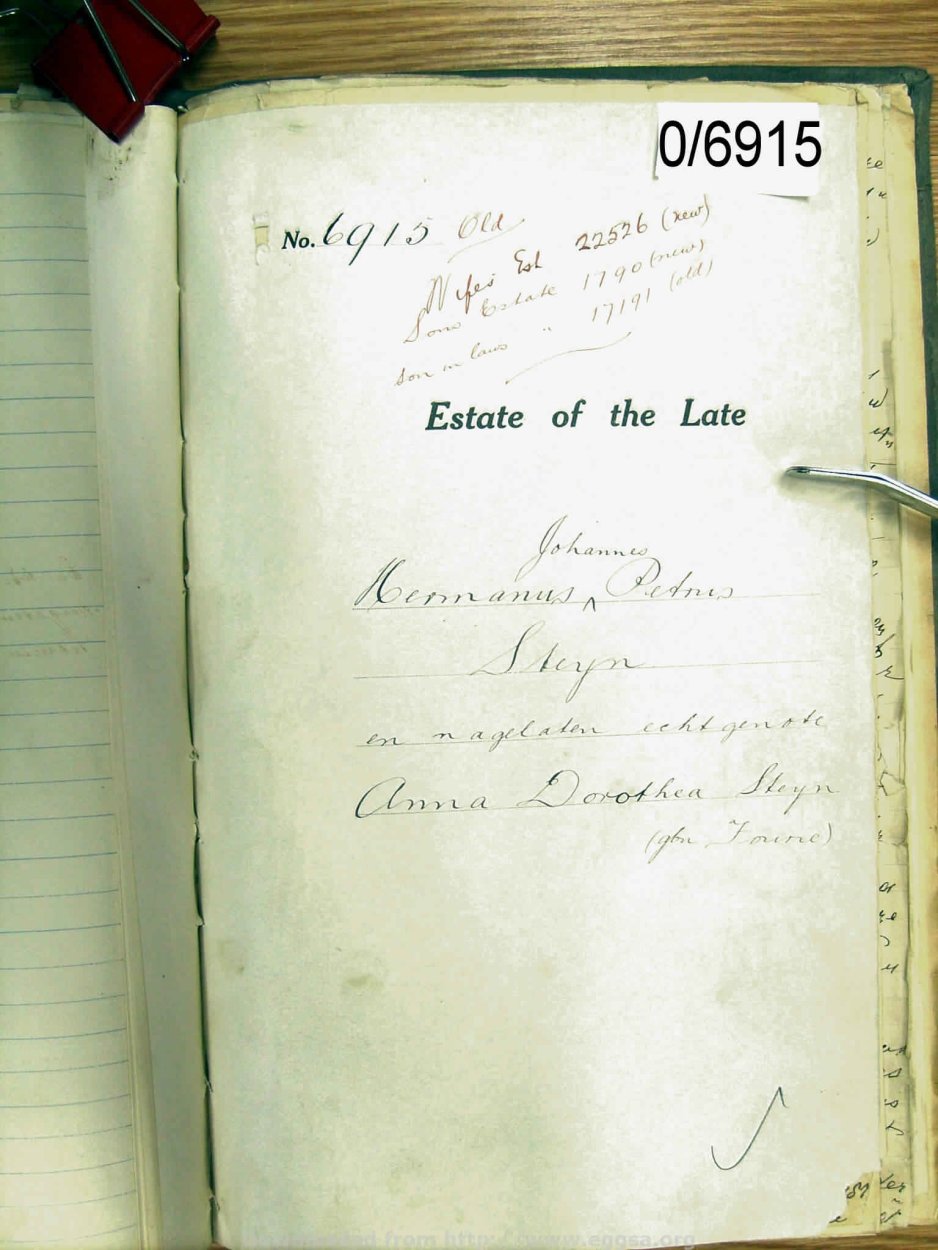 0/6915
No. 6915 Old
Wifes Est 22526 (new)
Sons Estate 1790 (new)
son in laws " 17191 (old)
Estate of the Late
Johannes
Hermanus ^ Petrus
Steyn
en nagelaten echtgenote
Anna Dorothea Steyn
(gbn Fourie)
from http://www.eggsa.org